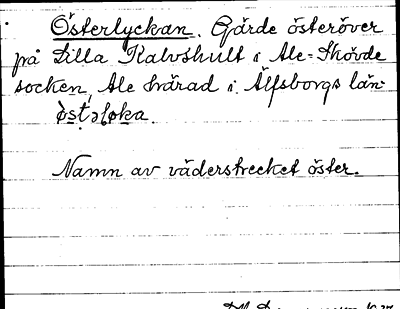 Österlyckan. Gärde österöver
på Lilla Kalvshult i Ale-Skövde
socken, Ale härad i Älfsborgs län.
Namn av väderstrecket öster.